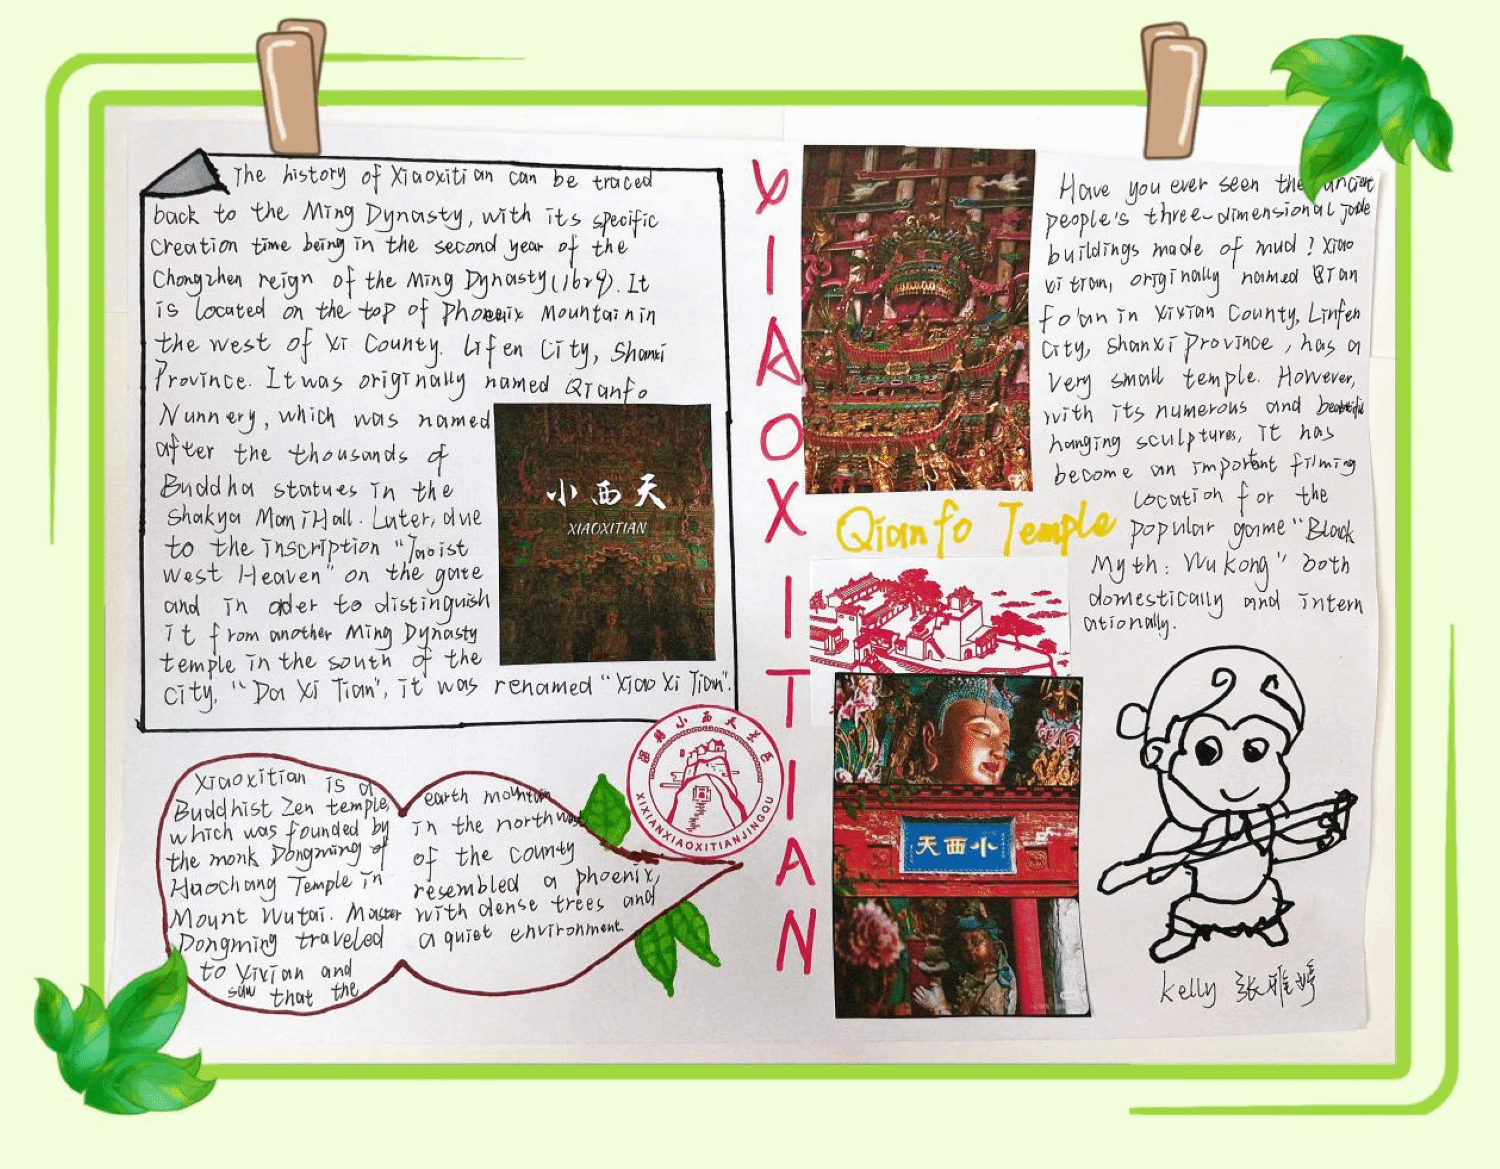 The history of Xiaoxitian can be traced
back to the Ming Dynasty, with its specific
creation time being in the second year of the
Chongzhen reign of the Ming Dynasty (1629). It
is located on the top of Phoenix Mountain in
the west of Xi County. Lifen City, Shanxi
Province. It was originally named Qianfo
Nunnery, which was named
after the thousands of
Buddha statues in the
Shakya Mani Hall. Later, due
to the inscription "Taoist
West Heaven" on the gate
and in order to distinguish
it from another Ming Dynasty
temple in the south of the
City, "Da Xi Tian", it was renamed "Xiao Xi Tian".
小西天
XIAOXITIAN
Xiaoxitian is a
Buddhist Zen temple,
which was founded by
the monk Dongming of
Haochang Temple in
Mount Wutai. Master
Dongming traveled
to Xixian and
saw that the
earth mountain
in the northwest
of the county
resembled a phoenix,
with dense trees and
a quiet environment.
隰县小西天景区
XIXIANXIAOXITIANJINGQU
XIAOXITIAN
Qianfo Temple
天西小
Have you ever seen the ancient
people's three-dimensional
buildings made of mud? Xiao
xi tian, originally named Qian
fo'an in Xixian County, Linfen
City, Shanxi Province, has a
very small temple. However,
with its numerous and beautiful
hanging sculptures, it has
become an important filming
location for the
popular game "Black
Myth: Wukong" both
domestically and intern
ationally.
kelly 张雅婷